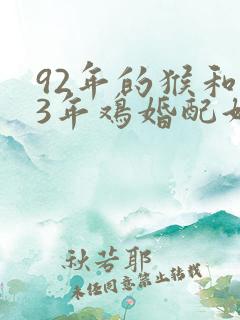 92年的猴和
3年鸡婚配
秋若耶
未经同意禁止转载